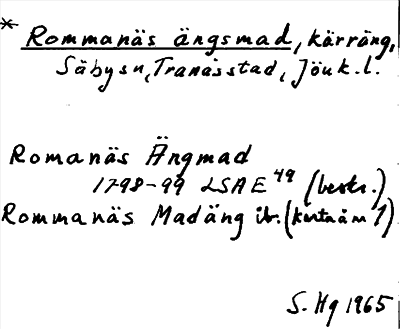 * Rommanäs ängsmad, kärräng,
Säby sn, Tranås stad, Jönk. l.
Romanäs Ängmad
1798-99 LSA E 49 (beskr.)
Rommanäs Madäng ib. (kartnamn 1)
S. Hg 1965